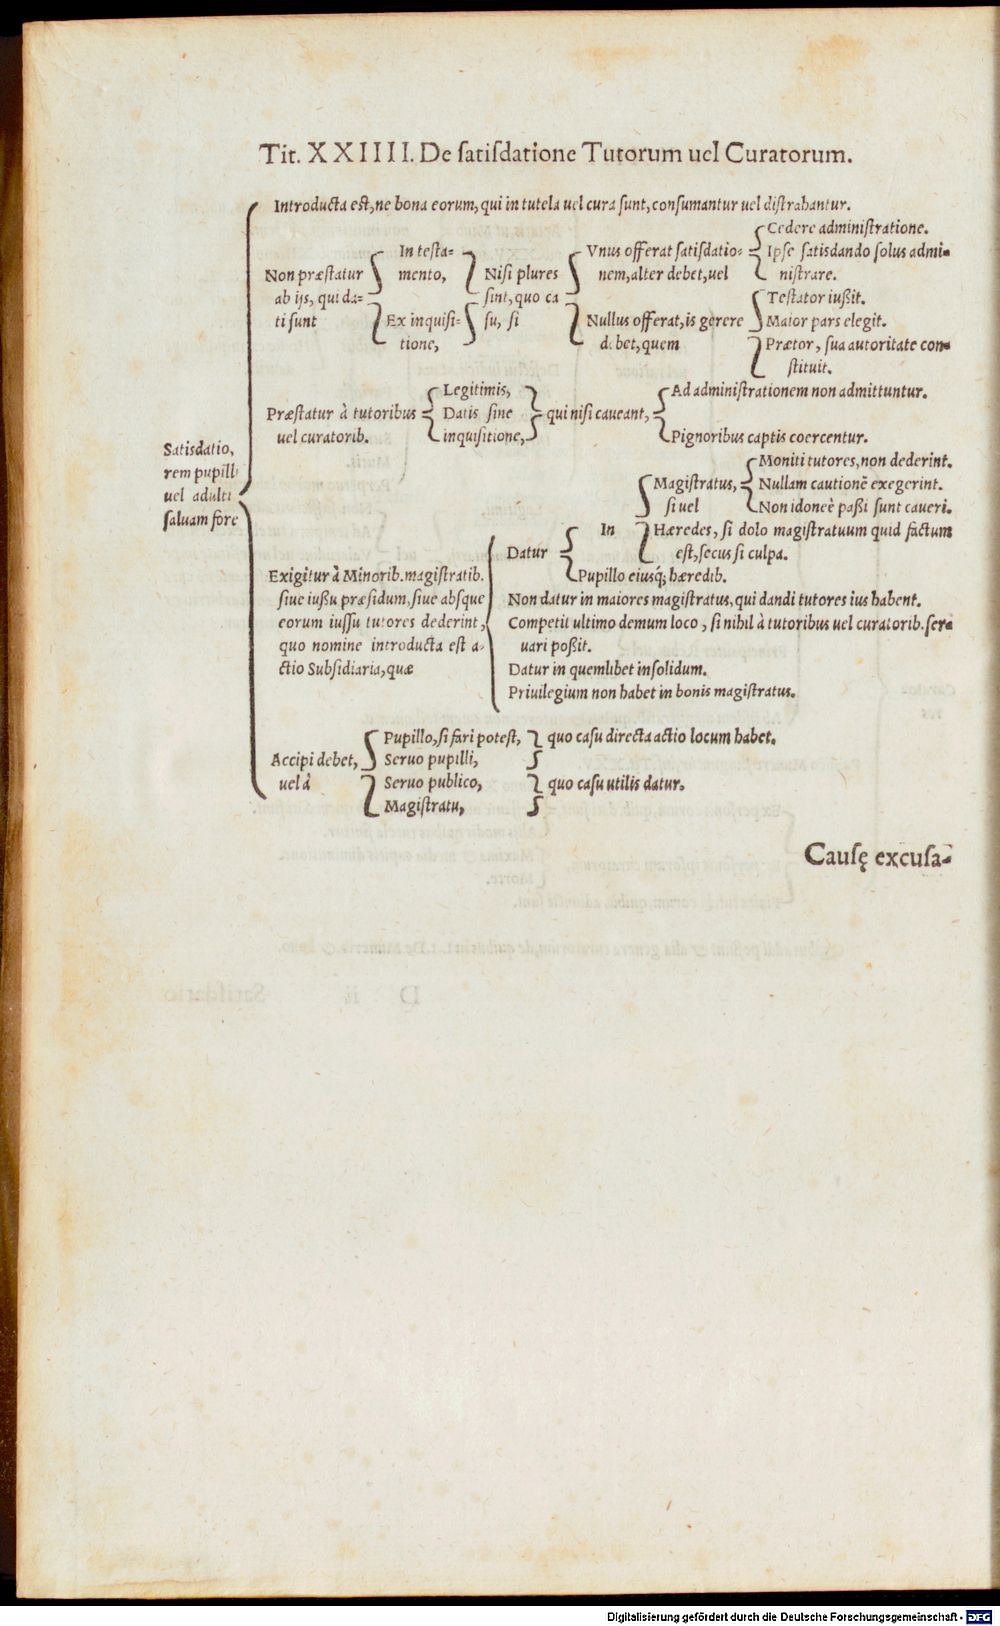 Tit. XXIIII. De satisdatione Tutorum uel Curatorum.
Satisdatio,
rem pupilli
uel adulti
saluam fore
Introducta est, ne bona eorum, qui in tutela uel cura sunt, consumantur uel distrahantur.
Non præstatur
ab ijs, qui da-
ti sunt
In testa-
mento,
Ex inquisi-
tione,
Nisi plures
sint, quo ca
su, si
Vnus offerat satisdatio-
nem, alter debet, uel
Cedere administratione.
Ipse satisdando solus admi-
nistrare.
Nullus offerat, is gerere
debet, quem
Testator iußit.
Maior pars elegit.
Prætor, sua autoritate con-
stituit.
Præstatur à tutoribus
uel curatorib.
Legitimis,
Datis sine
inquisitione,
qui nisi caueant,
Ad administrationem non admittuntur.
Pignoribus captis coercentur.
Exigitur à Minorib. magistratib.
siue iußu præsidum, siue absque
eorum iussu tutores dederint,
quo nomine introducta est a-
ctio Subsidiaria, quæ
Datur
In
Magistratus,
si uel
Moniti tutores, non dederint.
Nullam cautionē exegerint.
Non idoneè paßi sunt caueri.
Hæredes, si dolo magistratuum quid factum
est, secus si culpa.
Pupillo eiusq́; hæredib.
Non datur in maiores magistratus, qui dandi tutores ius habent.
Competit ultimo demum loco, si nihil à tutoribus uel curatorib. ser-
uari poßit.
Datur in quemlibet insolidum.
Priuilegium non habet in bonis magistratus.
Accipi debet,
uel à
Pupillo, si fari potest,
Seruo pupilli,
quo casu directa actio locum habet.
Seruo publico,
Magistratu,
quo casu utilis datur.
Causę excusa-
Digitalisierung gefördert durch die Deutsche Forschungsgemeinschaft - DFG